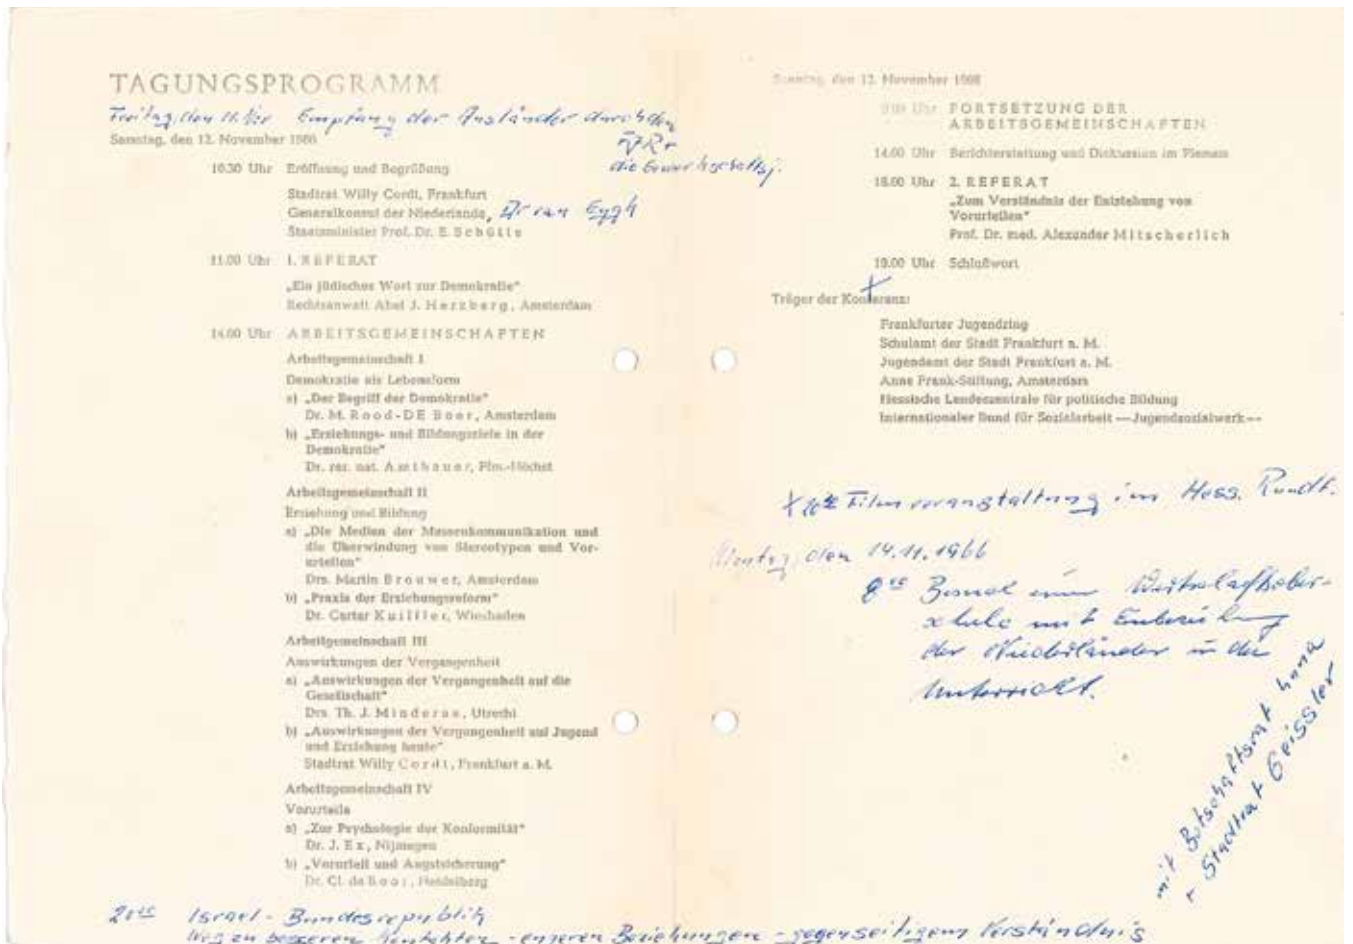 TAGUNGSPROGRAMM
Freitag, den 11. Empfang der Ausländer durch den
Samstag, den 12. November 1966
die Gewerkschaftsj.
10.30 Uhr Eröffnung und Begrüßung
Stadtrat Willy Cordt, Frankfurt
Generalkonsul der Niederlande, Dr van
Staatsminister Prof. Dr. E. Schütte
11.00 Uhr 1. REFERAT
„Ein jüdisches Wort zur Demokratie"
Rechtsanwalt Abel J. Herzberg, Amsterdam
14.00 Uhr ARBEITSGEMEINSCHAFTEN
Arbeitsgemeinschaft I
Demokratie als Lebensform
a) „Der Begriff der Demokratie"
Dr. M. Rood-DE Boer, Amsterdam
b) „Erziehungs- und Bildungsziele in der
Demokratie"
Dr. rer. nat. Amthauer, Ffm.-Höchst
Arbeitsgemeinschaft II
Erziehung und Bildung
a) „Die Medien der Massenkommunikation und
die Überwindung von Stereotypen und Vor-
urteilen"
Drs. Martin Brouwer, Amsterdam
b) „Praxis der Erziehungsreform"
Dr. Wiesbaden
Arbeitsgemeinschaft III
Auswirkungen der Vergangenheit
a) „Auswirkungen der Vergangenheit auf die
Gesellschaft"
Drs. Th. J. Utrecht
b) „Auswirkungen der Vergangenheit auf Jugend
und Erziehung heute"
Stadtrat Willy Cordt, Frankfurt a. M.
Arbeitsgemeinschaft IV
Vorurteile
a) „Zur Psychologie der Konformität"
Dr. J. Ex, Nijmegen
b) „Vorurteil und Angstsicherung"
Dr. Cl. de Boor, Heidelberg
20 Israel - Bundesrepublik
Weg zu besseren Kontakten - engeren Beziehungen - gegenseitigem Verständnis
Sonntag, den 13. November 1966
9.00 Uhr FORTSETZUNG DER
ARBEITSGEMEINSCHAFTEN
14.00 Uhr Berichterstattung und Diskussion im Plenum
18.00 Uhr 2. REFERAT
„Zum Verständnis der Entstehung von
Vorurteilen"
Prof. Dr. med. Alexander Mitscherlich
19.00 Uhr Schlußwort
X
Träger der Konferenz:
Frankfurter Jugendring
Schulamt der Stadt Frankfurt a. M.
Jugendamt der Stadt Frankfurt a. M.
Anne Frank-Stiftung, Amsterdam
Hessische Landeszentrale für politische Bildung
Internationaler Bund für Sozialarbeit — Jugendsozialwerk —
X 20 Filmveranstaltung im Hess. Rundf.
Montag, den 14.11.1966
8 Besuch einer
schule mit
der Niederländer in den
Unterricht.
mit Botschaftsrat
+ Stadtrat Geissler